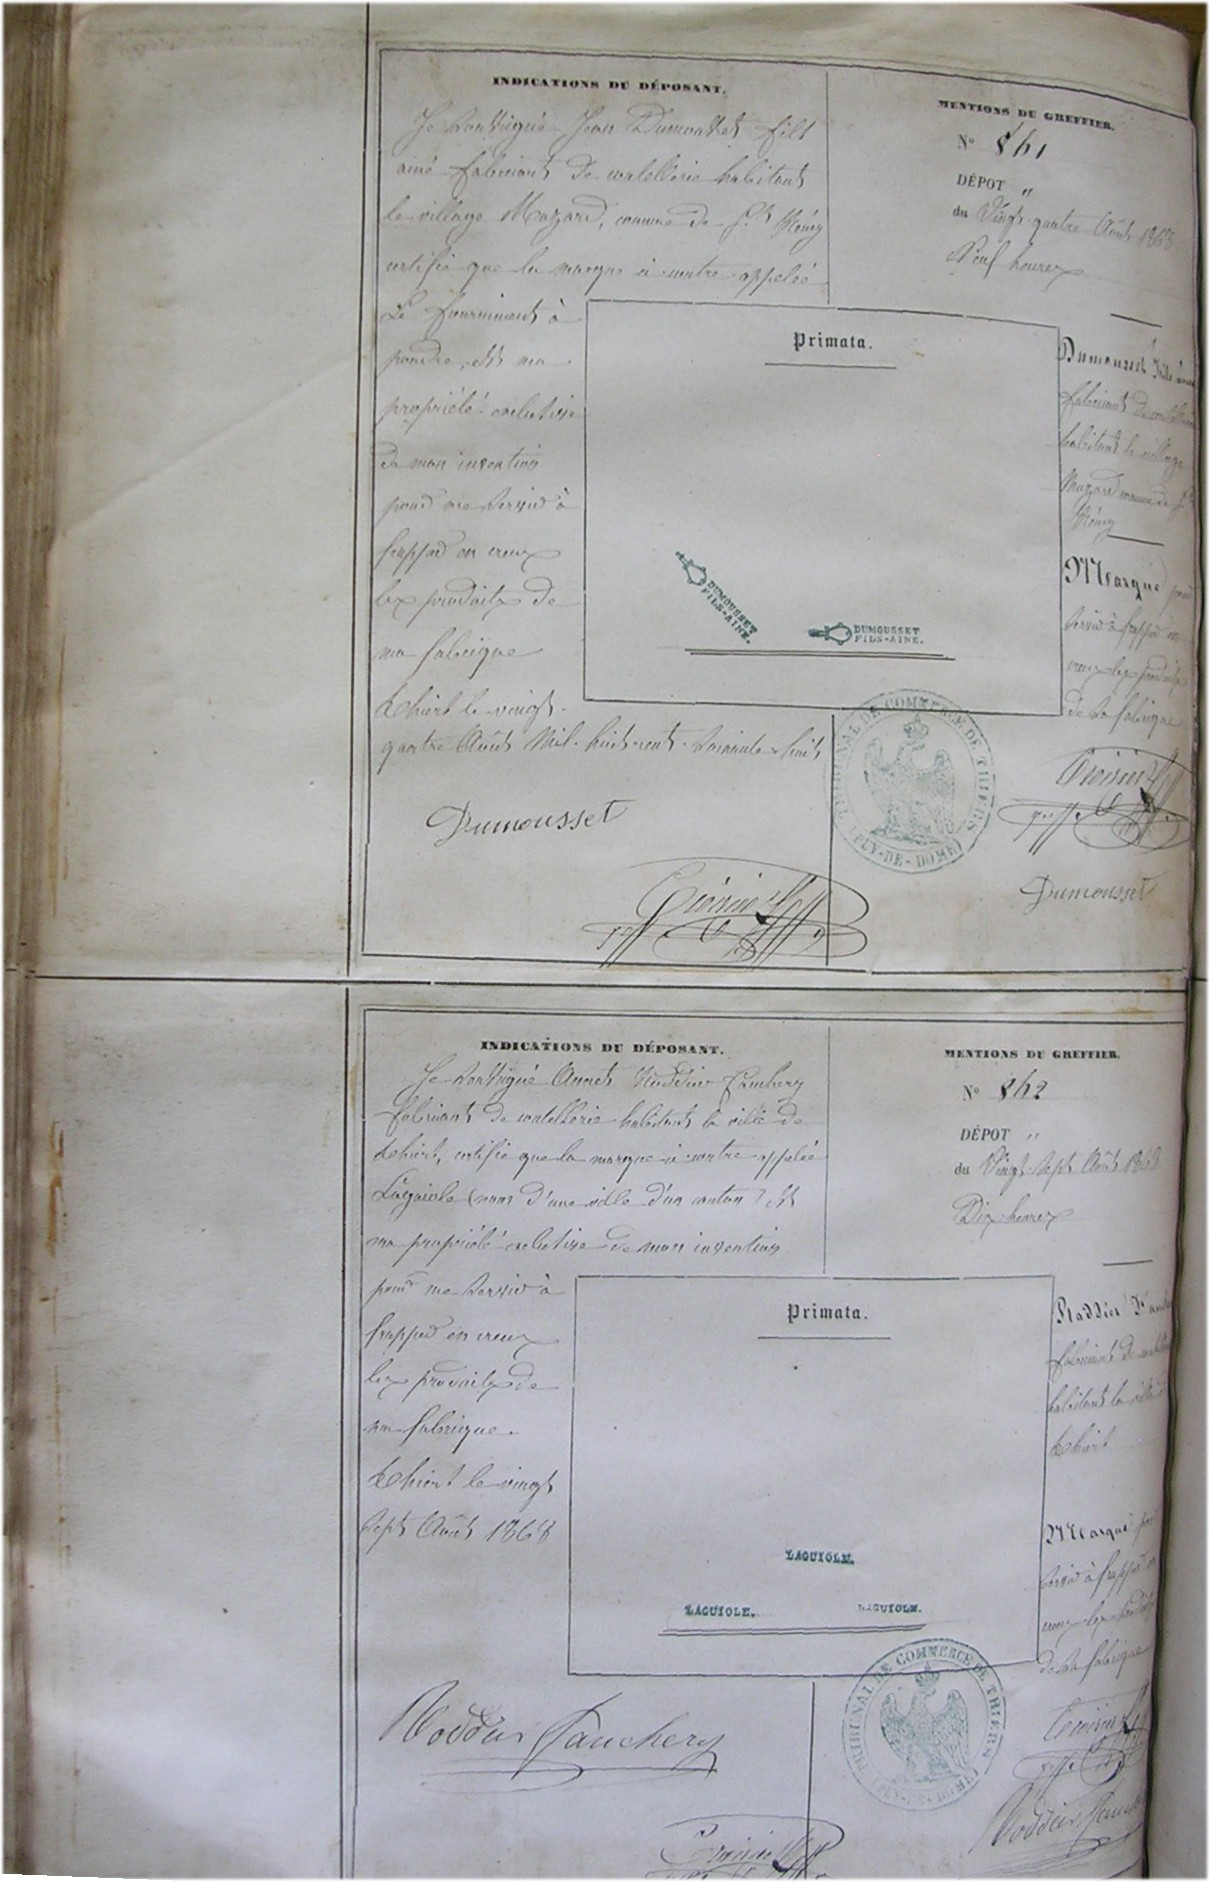 INDICATIONS DU DÉPOSANT.
Je soussigné Jean Dumousset fils
ainé fabricant de coutellerie habitant
le village Mazard, commune de St Rémy
certifie que la marque ci contre appelée
Le fourniment à
poudre, est ma
propriété exclusive
de mon invention
pour me servir à
frapper en creux
les produits de
ma fabrique
Thiers le vingt-
quatre Août Mil-huit-cent-soixante-huit
Dumousset
MENTIONS DU GREFFIER.
No 861
DÉPOT "
du Vingt-quatre Août 1868
Neuf heures
Primata.
DUMOUSSET
FILS-AINE.
DUMOUSSET
FILS-AINE.
Dumousset fils ainé
fabricant de coutellerie
habitant le village
Mazard commune de St
Rémy
Marque pour
servir à frapper en
creux les produits
de sa fabrique
TRIBUNAL DE COMMERCE DE THIERS
(PUY-DE-DOME)
Dumousset
INDICATIONS DU DÉPOSANT.
Je soussigné Annet Roddier Fauchery
fabricant de coutellerie habitant la ville de
Thiers, certifie que la marque ci contre appelée
Lagaiole (nom d'une ville d'un canton) est
ma propriété exclusive de mon invention
pour me servir à
frapper en creux
les produits de
ma fabrique.
Thiers le vingt
sept Août 1868
Roddier Fauchery
MENTIONS DU GREFFIER.
No 862
DÉPOT "
du Vingt-sept Août 1868
Dix heures
Primata.
LAGUIOLE.
LAGUIOLE.
LAGUIOLE.
Roddier
fabricant de
habitant la ville de
Thiers
Marque pour
servir à frapper en
creux les produits
de sa fabrique
TRIBUNAL DE COMMERCE DE THIERS
(PUY-DE-DOME)
Roddier